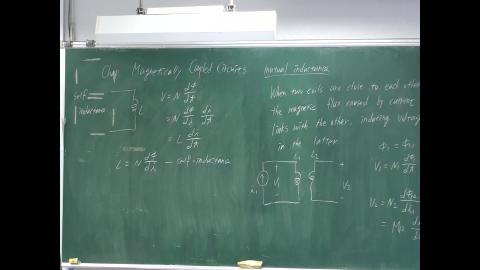 Chap Magnetically Coupled Circuits
self inductance
L
V = N dΦ/dt
= N dΦ/di di/dt
= L di/dt
L = N dΦ/di — self-inductance
mutual inductance
When two coils are close to each other
the magnetic flux caused by current
links with the other, inducing voltage
in the latter
i₁ V₁ L₁ L₂ V₂
+ − + −
V₁ = N₁
V₂ = N₂
= M₂₁